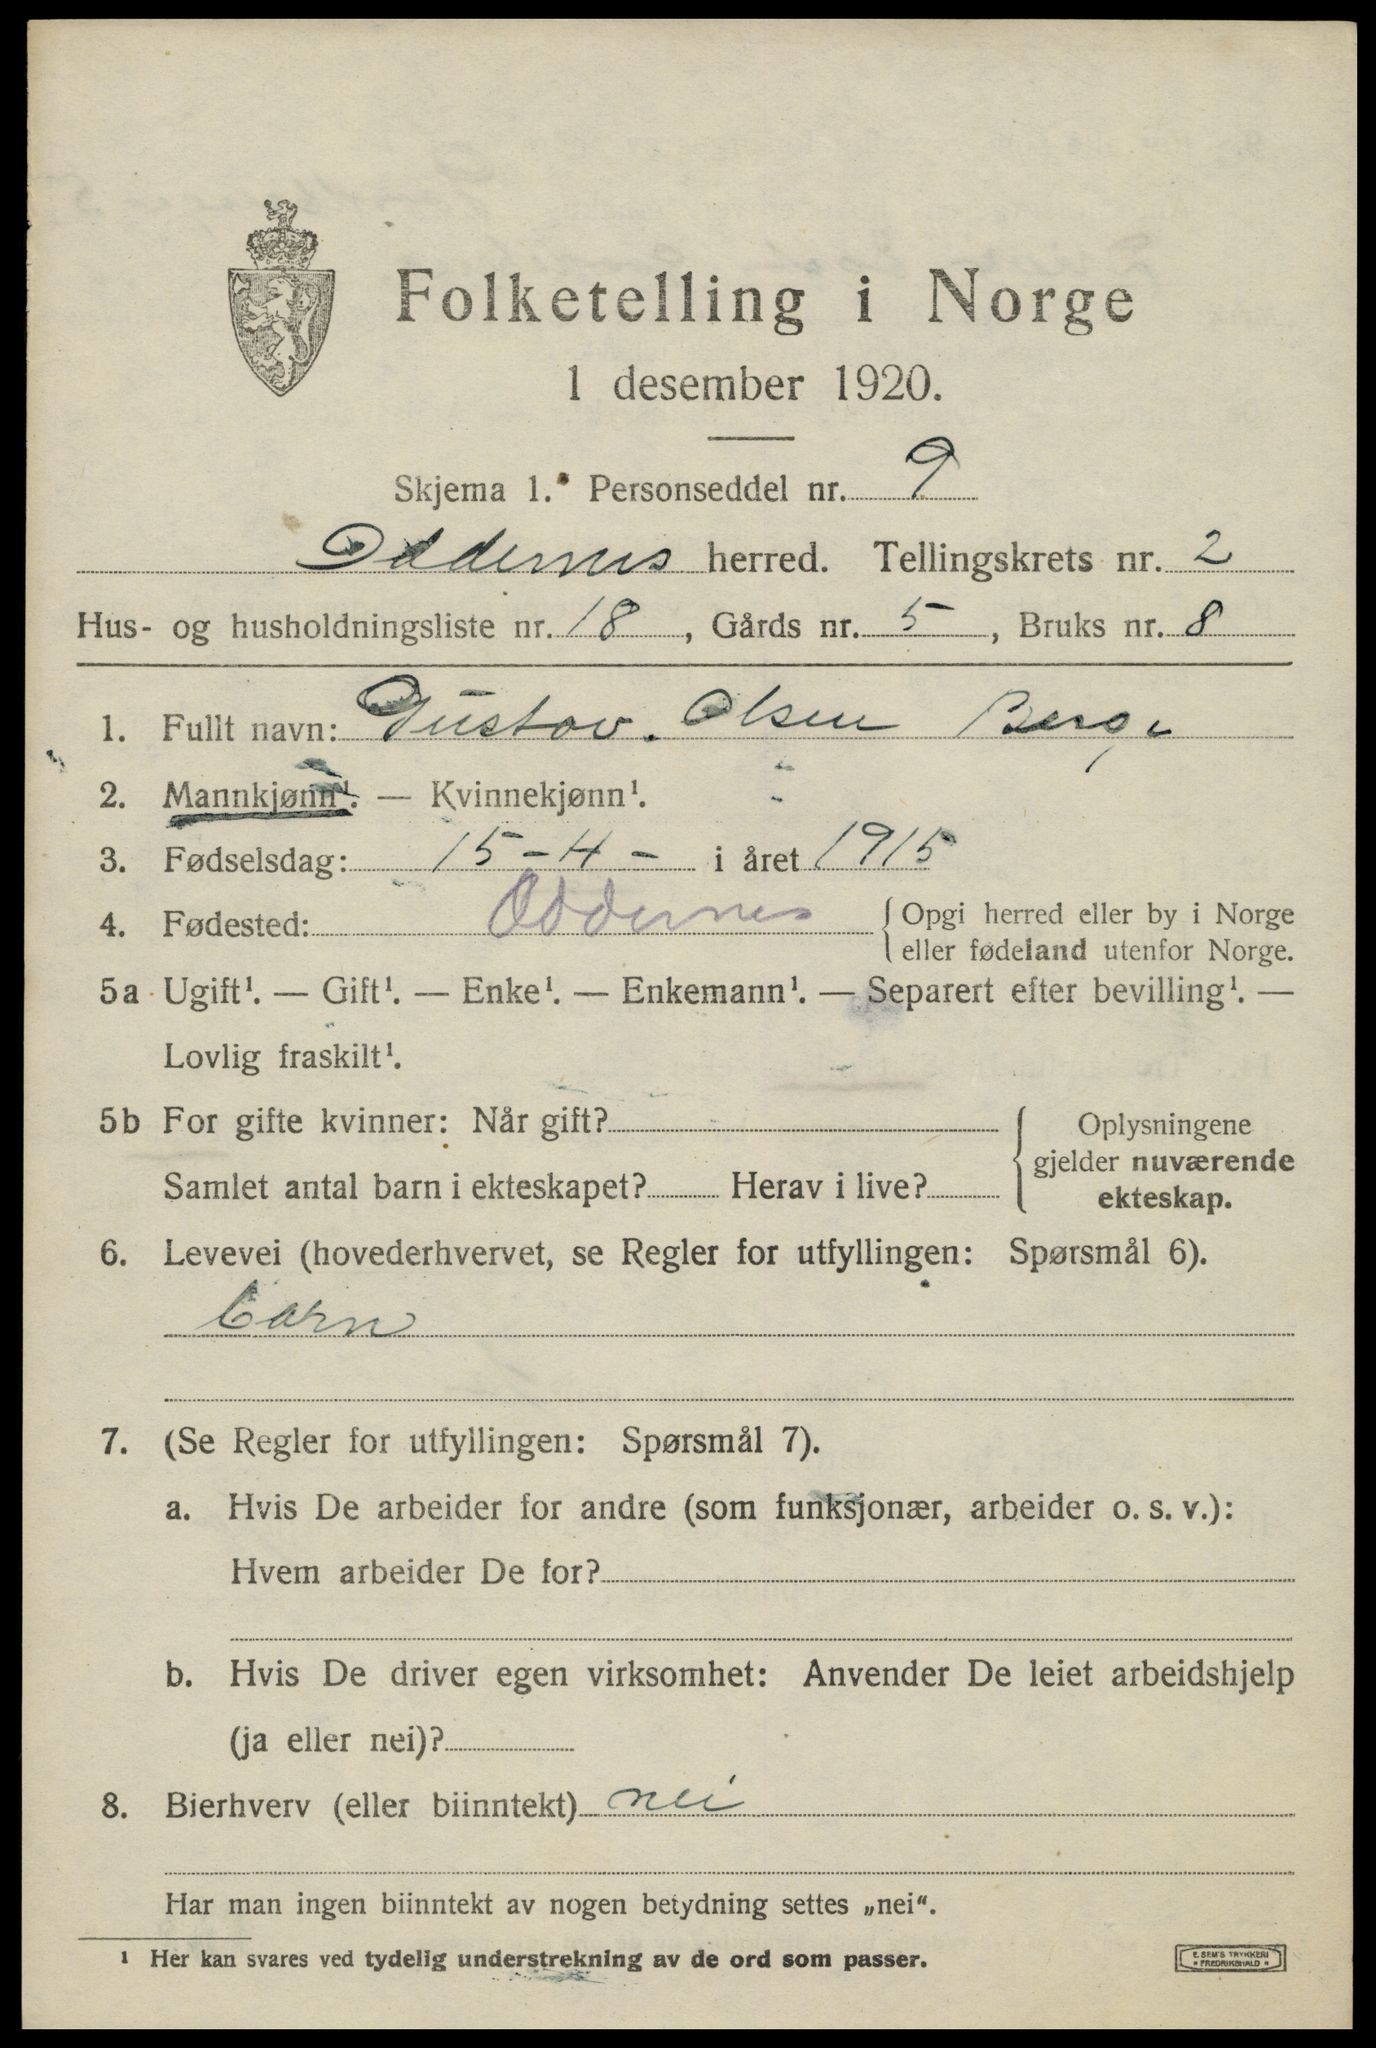 Folketelling i Norge
1 desember 1920.
Skjema 1. Personseddel nr. 9
Oddernes herred. Tellingskrets nr. 2
Hus- og husholdningsliste nr. 18, Gårds nr. 5, Bruks nr. 8
1. Fullt navn: Gustav. Olsen Berge
2. Mannkjønn¹. — Kvinnekjønn¹.
3. Fødselsdag: 15-4- i året 1915
4. Fødested: Oddernes { Opgi herred eller by i Norge
eller fødeland utenfor Norge.
5a Ugift¹. — Gift¹. — Enke¹. — Enkemann¹. — Separert efter bevilling¹. —
Lovlig fraskilt¹.
5b For gifte kvinner: Når gift?
Samlet antal barn i ekteskapet? Herav i live?
Oplysningene
gjelder nuværende
ekteskap.
6. Levevei (hovederhvervet, se Regler for utfyllingen: Spørsmål 6).
barn
7. (Se Regler for utfyllingen: Spørsmål 7).
a. Hvis De arbeider for andre (som funksjonær, arbeider o. s. v.):
Hvem arbeider De for?
b. Hvis De driver egen virksomhet: Anvender De leiet arbeidshjelp
(ja eller nei)?
8. Bierhverv (eller biinntekt) nei
Har man ingen biinntekt av nogen betydning settes „nei“.
¹ Her kan svares ved tydelig understrekning av de ord som passer.
E. SEM'S TRYKKERI
* FREDRIKSHALD *